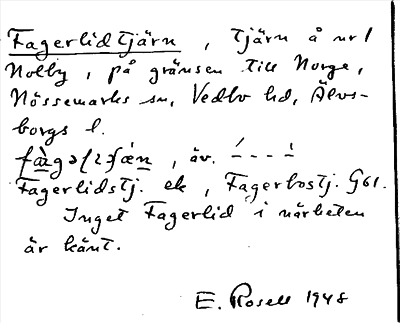 Fagerlidtjärn, tjärn å nr 1
Nolby, på gränsen till Norge,
Nössemarks sn, Vedbo hd, Älvs-
borgs l.
, äv.
Fagerlidstj. ek, Fagerbostj. G61.
Inget Fagerlid i närheten
är känt.
E. Rosell 1948